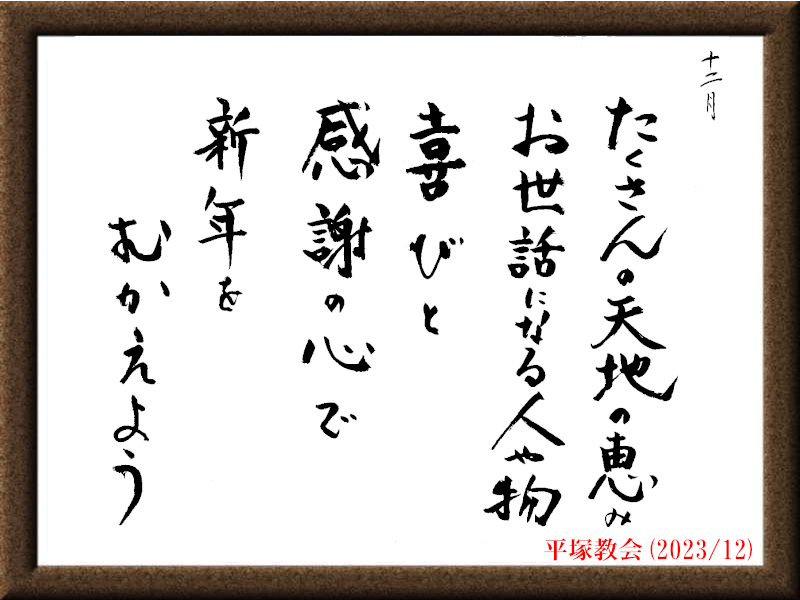 十二月
たくさんの天地の恵み
お世話になる人や物
喜びと
感謝の心で
新年を
むかえよう
平塚教会(2023/12)